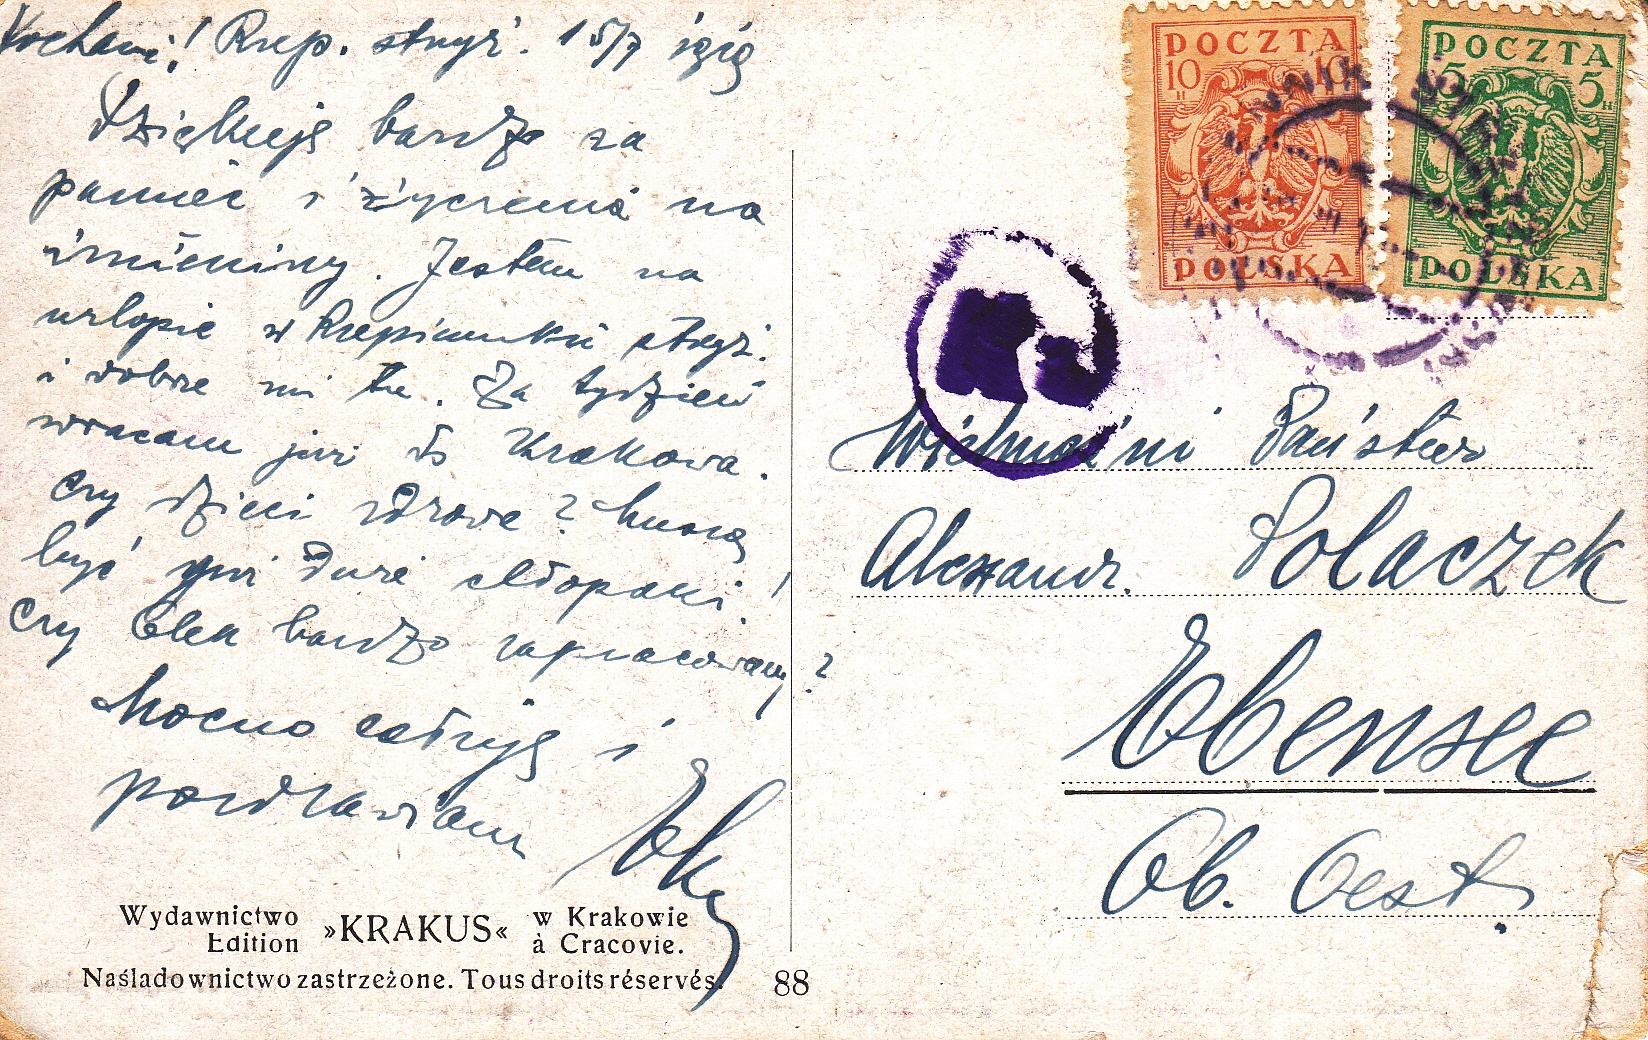 Kochani! Rzep. stryż. 15/7 1919
Dziękuję bardzo za
pamięć i życzenia na
imieniny. Jestem na
urlopie w Rzepienniku stryż.
i dobrze mi tu. Za tydzień
wracam już do Krakowa.
Czy dzieci zdrowe? Muszą
być już duże chłopaki!
Czy Olek bardzo zapracowany?
Mocno całuję i
pozdrawiam
Wydawnictwo »KRAKUS« w Krakowie
Edition à Cracovie.
Naśladownictwo zastrzeżone. Tous droits réservés.
88
POCZTA
10 10
H
POLSKA
POCZTA
5 5
H
POLSKA
Wielmożni Państwo
Alexandr. Polaczek
Ebensee
Ob. Oest.